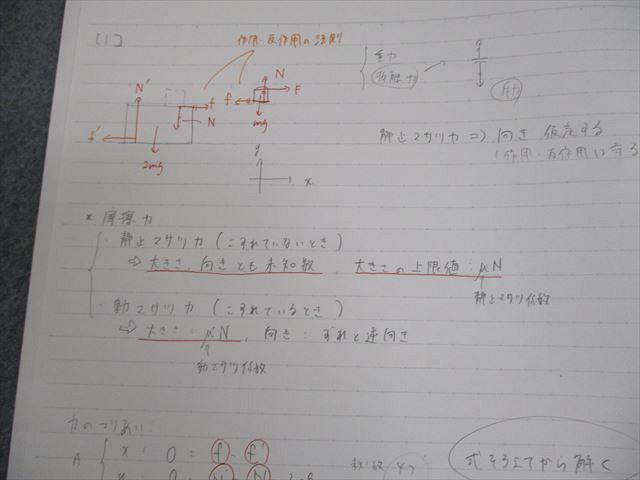 [1]
作用・反作用の法則
重力
接触力
N'
f
N
f'
2mg
f
N
F
mg
y
x
静止マサツ力 ⇒ 向き 仮定する
(作用・反作用は守る
* 摩擦力
・静止マサツ力 (こすれていないとき)
⇒ 大きさ、向きとも未知数、大きさの上限値:μN
静止マサツ係数
・動マサツ力 (こすれているとき)
⇒ 大きさ:μ'N、向き:ずれと逆向き
動マサツ係数
力のつりあい
A
x: 0 = f - f'
0 = N
式そろえてから解く